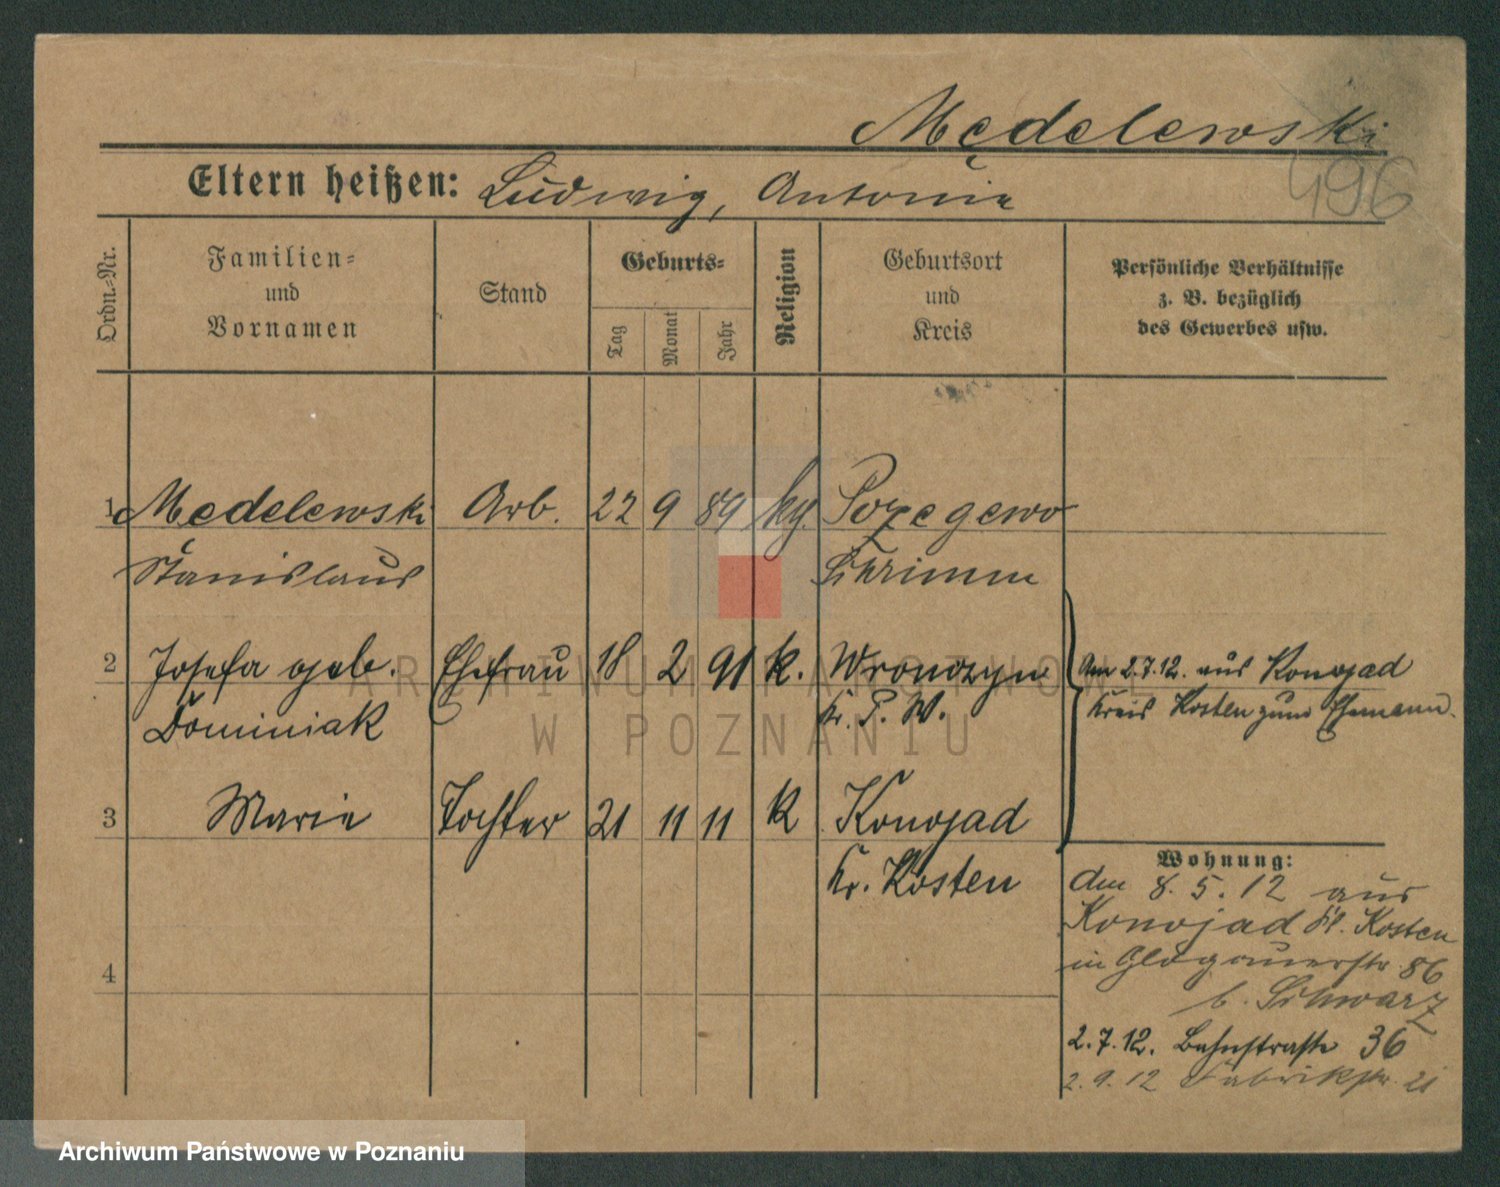 Mędelewski
496
Eltern heißen: Ludwig, Antonie
Ordn.-Nr.
Familien-
und
Vornamen
Stand
Geburts-
Tag
Monat
Jahr
Religion
Geburtsort
und
Kreis
Persönliche Verhältnisse
z. B. bezüglich
des Gewerbes usw.
1 Mędelewski Arb. 22 9 89 kg.
Stanislaus Schrimm
2 Josefa geb. Ehefrau 18 2 91 k. Wronczyn
Dominiak Kr. P. W.
Am 2.7.12. aus Konojad
Kreis Kosten zum Ehemann.
3 Marie Tochter 21 11 11 k Konojad
Kr. Kosten
Wohnung:
den 8.5.12 aus
Konojad Kr. Kosten
in Glogauerstr. 86
b. Schwarz
4
2.7.12. Bahnstraße 36
2.9.12 Fabrikstr. 21
ARCHIWUM PAŃSTWOWE
W POZNANIU
Archiwum Państwowe w Poznaniu